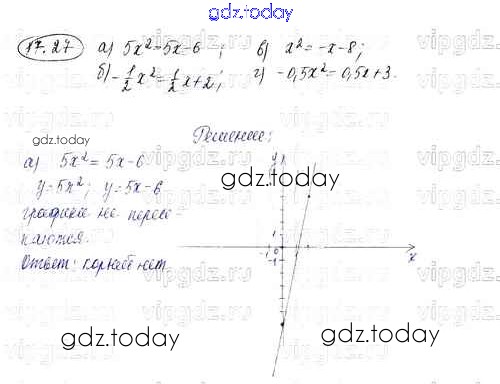 gdz.today
17.27 а) 5x²=5x-6; в) x²=-x-8;
б) -1/2x²=1/2x+2; г) -0,5x²=0,5x+3.
gdz.today
Решение:
а) 5x²=5x-6
y=5x²; y=5x-6
графики не пересе-
каются.
Ответ: корней нет.
y
gdz.today
1
-1 0 1
-1
x
gdz.today
gdz.today
vipgdz.ru